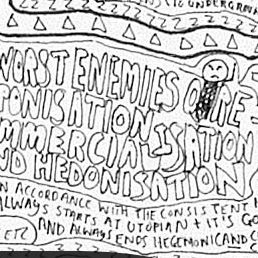 UNDERGROUN
WORST ENEMIES RE
PONISATION
MMERCIALISATION
ND HEDONISATION
N ACCORDANCE WITH THE CONSISTENT
ALWAYS STARTS AT UTOPIAN + IT'S GO
ETC AND ALWAYS ENDS HEGEMONIC AND C